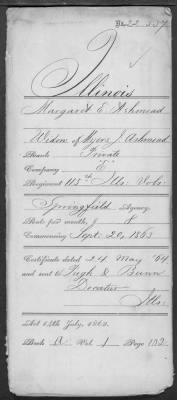 Illinois
Margaret E. Ashmead
Widow of Myers J. Ashmead
Rank Private
Company "E"
Regiment 115th Ills. Vols.
Springfield Agency
Rate per month, $ 8
Commencing Sept. 20, 1863
Certificate dated 24 May '64
and sent to Pugh & Bunn
Decatur
Ills.
Act 14th July, 1862.
Book Vol. 1 Page 132